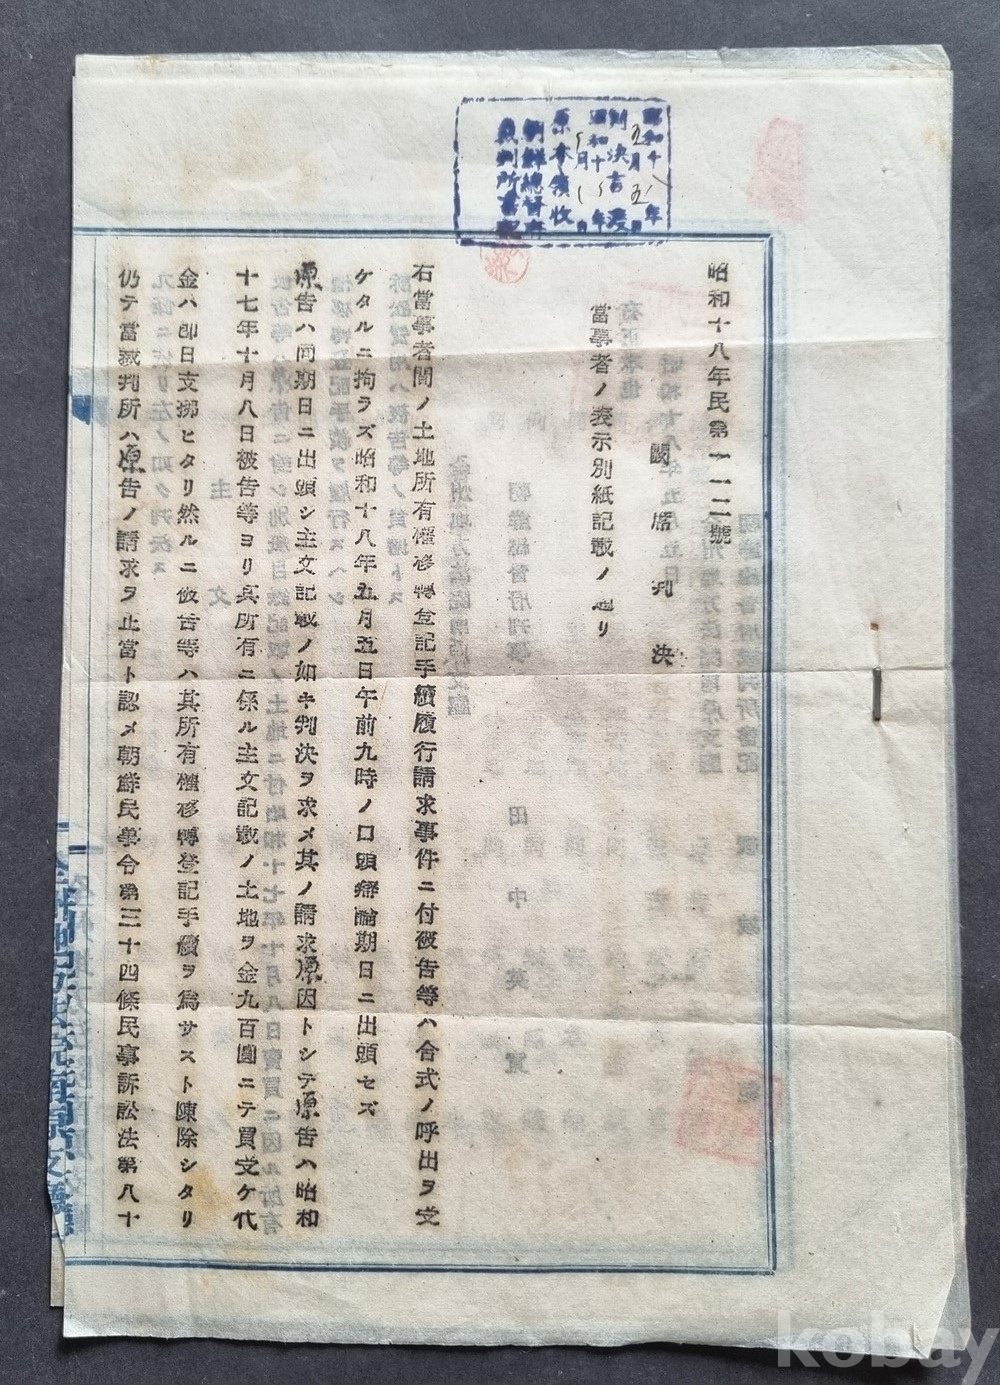 昭和十八年五月五日
判決言渡
昭和十 年 月 日
原本領收
朝鮮總督府
裁判所書記
昭和十八年民第一一二號
闕席判決
當事者ノ表示別紙記載ノ通リ
右當事者間ノ土地所有權移轉登記手續履行請求事件ニ付被告等ハ合式ノ呼出ヲ受
ケタルニ拘ラズ昭和十八年五月五日午前九時ノ口頭辯論期日ニ出頭セズ
原告ハ同期日ニ出頭シ主文記載ノ如キ判決ヲ求メ其ノ請求原因トシテ原告ハ昭和
十七年十月八日被告等ヨリ其所有ニ係ル主文記載ノ土地ヲ金九百圓ニテ買受ケ代
金ハ卽日支拂ヒタリ然ルニ被告等ハ其所有權移轉登記手續ヲ爲サスト陳除シタリ
仍テ當裁判所ハ原告ノ請求ヲ正當ト認メ朝鮮民事令第三十四條民事訴訟法第八十
kobay